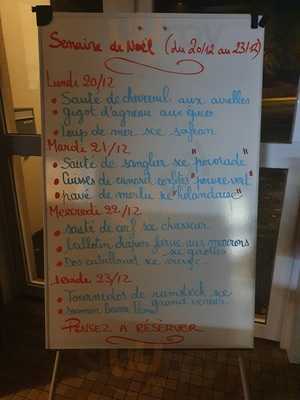 Semaine de Noël (du 20/12 au 23/12)
Lundi 20/12
• Sauté de chevreuil aux airelles
• Gigot d'agneau aux épices
• Loup de mer sce safran
Mardi 21/12
• Sauté de sanglier sce "poivrade"
• Cuisses de canard confites "poivre vert"
• pavé de merlu sce "hollandaise"
Mercredi 22/12
• sauté de cerf sce chasseur
• farcie aux marrons
• Dos cabillaud sce
Jeudi 23/12
• Tournedos de rumsteck sce grand veneur
• saumon beurre blanc
PENSEZ À RÉSERVER